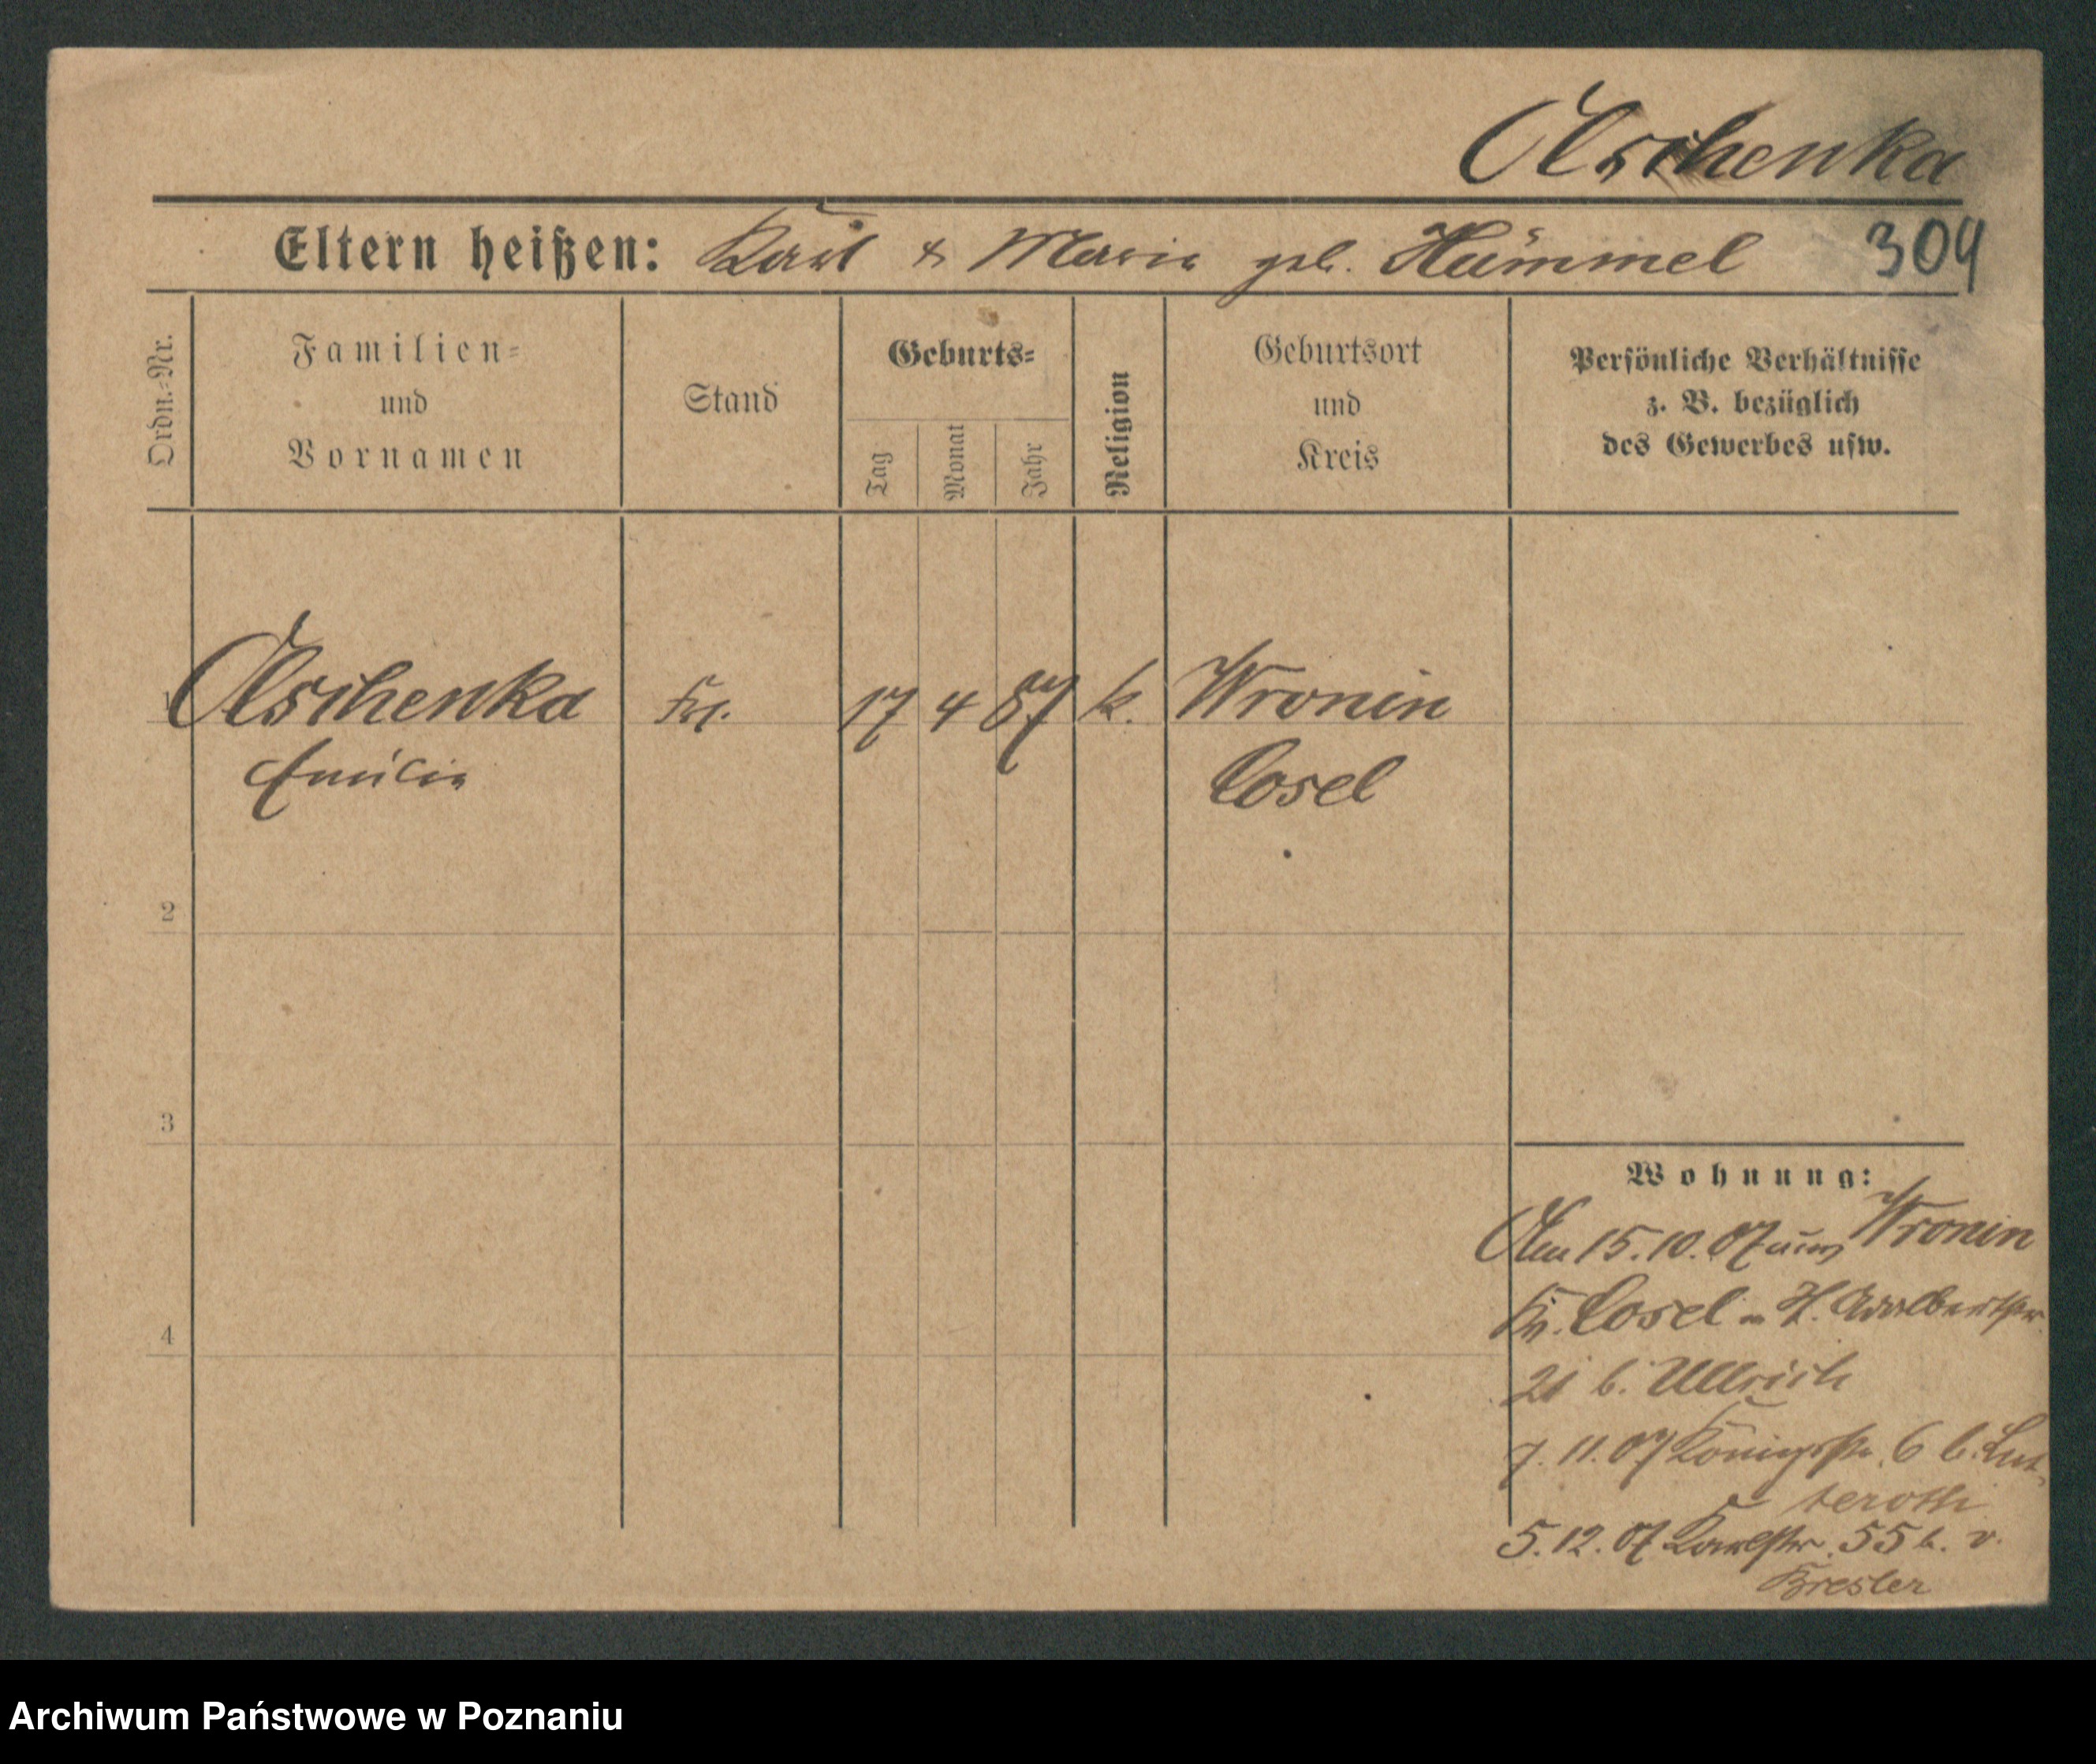 Aschenka
Eltern heißen: Karl & Maria geb. Hümmel 304
Ordn.-Nr.
Familien-
und
Vornamen
Stand
Geburts-
Tag
Monat
Jahr
Religion
Geburtsort
und
Kreis
Persönliche Verhältnisse
z. B. bezüglich
des Gewerbes usw.
1 Aschenka Frl. 17 4 87 k. Wronin
Emilie Cosel
2
3
4
Wohnung:
Am 15.10.07 aus Wronin
Kr. Cosel n. H. Adalbertstr.
21 b. Ullrich
7.11.07 Königsstr. 6 b. Lut-
teroth
5.12.07 Karlstr. 55 b. v.
Bresler
Archiwum Państwowe w Poznaniu